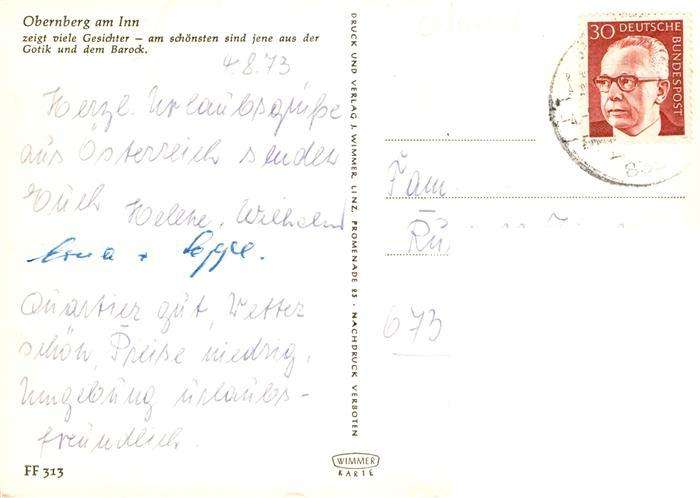 Obernberg am Inn
zeigt viele Gesichter – am schönsten sind jene aus der
Gotik und dem Barock.
4.8.73
Herzl. Urlaubsgrüße
aus Österreich senden
Euch Helene, Wilhelm
Erna + Seppl.
Quartier gut, Wetter
schön, Preise niedrig,
Umgebung urlaubs-
freundlich.
FF 313
DRUCK UND VERLAG J. WIMMER, LINZ, PROMENADE 23 · NACHDRUCK VERBOTEN
WIMMER
KARTE
30 DEUTSCHE
BUNDESPOST
Fam.
673